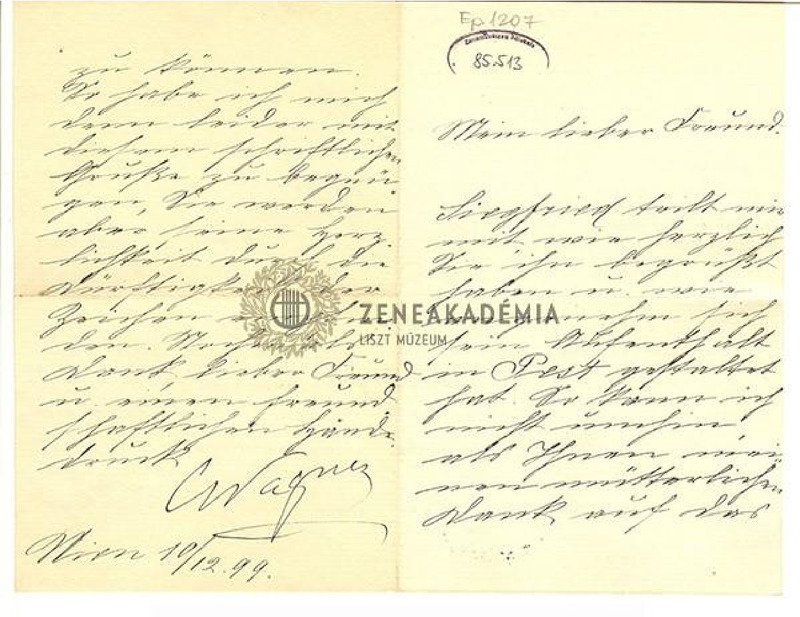 Ep. 1207
85.513
Mein lieber Freund.
Siegfried teilt mir
mit wie herzlich
Sie ihn begrüßt
haben u. wie
sich
sein Aufenthalt
in Pest gestaltet
hat. So kann ich
nicht umhin
als Ihnen mei
nen mütterlichen
Dank auf das
zu können.
So habe ich mich
denn leider mit
diesem schriftlichen
Gruße zu begnü
gen, Sie werden
aber seine Herz
lichkeit durch die
Dürftigkeit der
Zeichen
den.
Dank, lieber Freund
u. einen freund
schaftlichen Hände
druck
CWagner
Wien 10/12.99.
ZENEAKADÉMIA
LISZT MÚZEUM